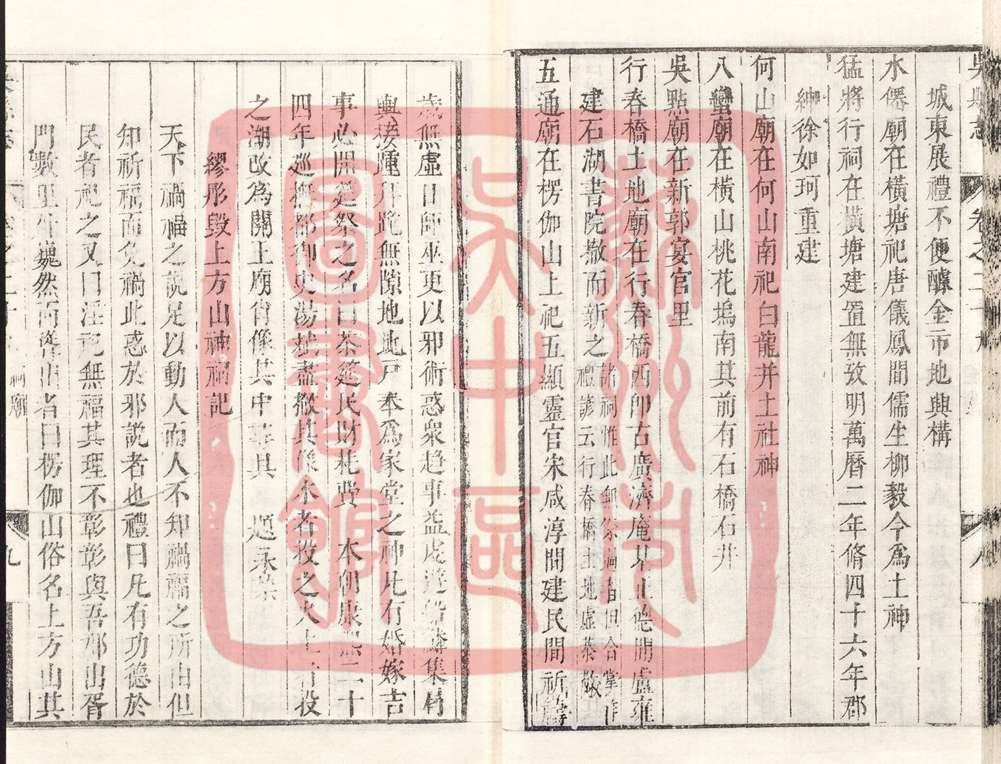 吳縣志 卷之二十 八
城東展禮不便醵金市地與構
水僊廟在橫塘祀唐儀鳳間儒生柳毅今為土神
猛將行祠在橫塘建置無攷明萬曆二年脩四十六年郡
紳徐如珂重建
何山廟在何山南祀白龍并土社神
八蠻廟在橫山桃花塢南其前有石橋石井
吳點廟在新郭宴官里
行春橋土地廟在行春橋西卽古廣濟庵
建石湖書院撤而新之 諺云行春橋土地虛恭敬
五通廟在楞伽山上祀五顯靈官宋咸淳間建民間祈禱
歲無虛日師巫更以邪術惑衆趨事益虔簫鼓集
輿接踵拜跪無隙地比戶奉為家堂之神凡有婚嫁吉
事必開筵祭之名曰茶筵民財耗費 本朝康熙二十
四年巡撫都御史湯斌盡撤其像木者投之火土者投
之湖改為關王廟
繆彤毀上方山神祠記
天下禍福之說足以動人而人不知禍福之所由但
知祈福而免禍此惑於邪說者也禮曰凡有功德於
民者祀之又曰淫祀無福其理不彰彰與吾郡出胥
門數里外巍然而聳出者曰楞伽山俗名上方山其
祠廟 九
蘇州市
吳中區
圖書館